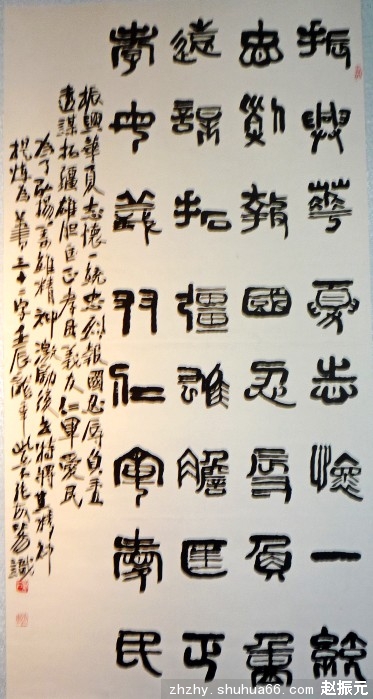 振興華夏志懷一統
忠烈報國忍辱負重
遠謀拓疆雄膽匡正
孝母義友仁軍愛民
振興華夏志懷一統忠烈報國忍辱負重
遠謀拓疆雄胆匡正孝母義友仁軍愛民
为了弘揚英雄精神激勵後世特將其精神
提煉為三十二字壬辰龍年
zhzhy.shuhua66.com 赵振元